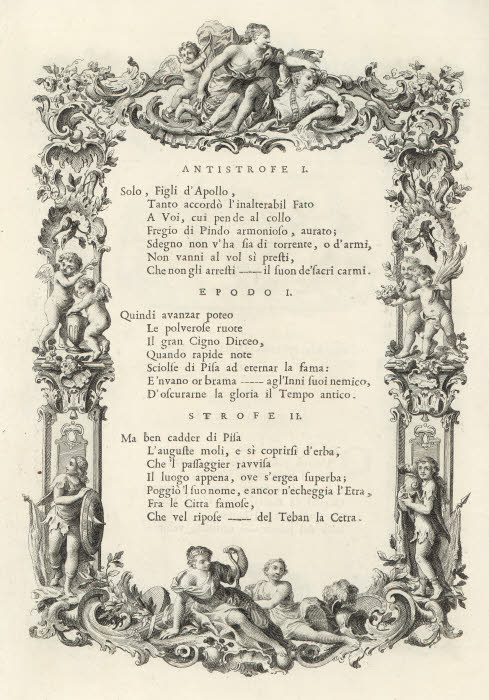 ANTISTROFE I.
Solo, Figli d'Apollo,
Tanto accordò l'inalterabil Fato
A Voi, cui pende al collo
Fregio di Pindo armonioso, aurato;
Sdegno non v'ha ſia di torrente, o d'armi,
Non vanni al vol sì preſti,
Che non gli arreſti —— il ſuon de'ſacri carmi.
EPODO I.
Quindi avanzar poteo
Le polveroſe ruote
Il gran Cigno Dirceo,
Quando rapide note
Sciolſe di Piſa ad eternar la fama:
E'nvano or brama —— agl'Inni ſuoi nemico,
D'oſcurarne la gloria il Tempo antico.
STROFE II.
Ma ben cadder di Piſa
L'auguſte moli, e sì coprirſi d'erba,
Che 'l paſſaggier ravviſa
Il luogo appena, ove s'ergea ſuperba;
Poggiò 'l ſuo nome, e ancor n'echeggia l'Etra,
Fra le Citta famoſe,
Che vel ripoſe —— del Teban la Cetra.